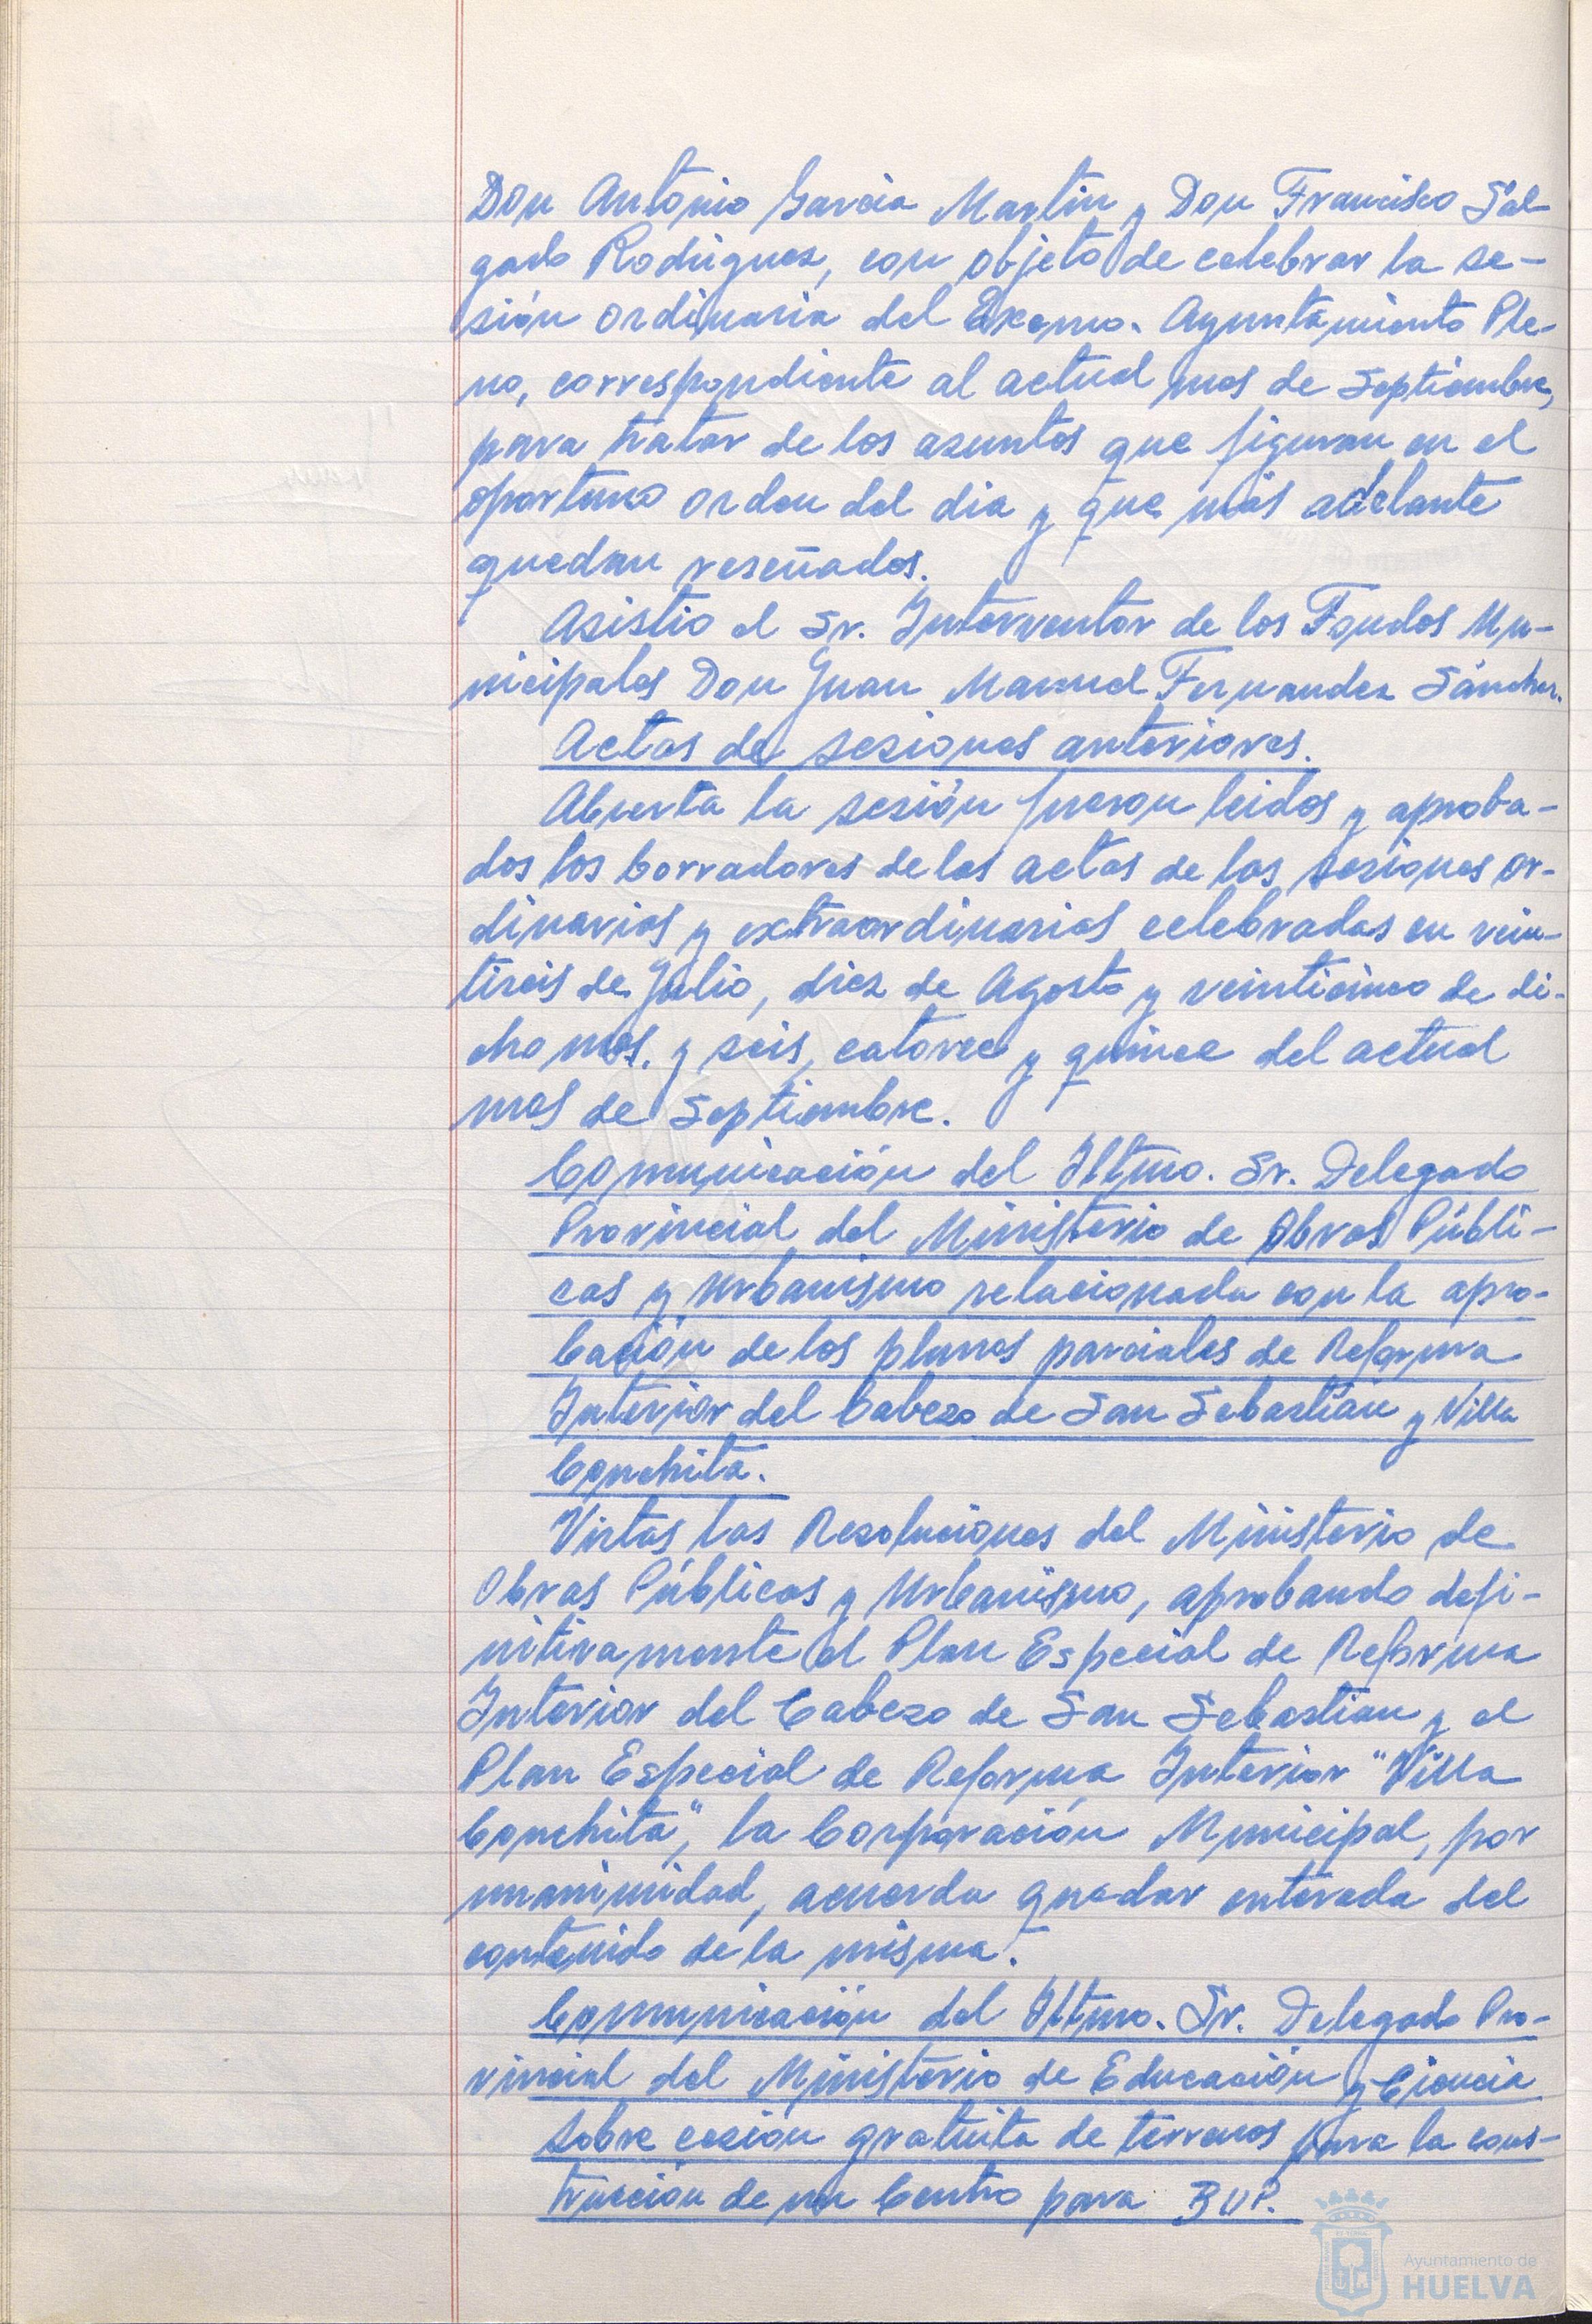 Don Antonio Garcia Martin y Don Francisco Sal-
gado Rodriguez, con objeto de celebrar la se-
sión ordinaria del Excmo. Ayuntamiento Ple-
no, correspondiente al actual mes de Septiembre,
para tratar de los asuntos que figuran en el
oportuno orden del dia y que más adelante
quedan reseñados.
Asistio el Sr. Interventor de los Fondos Mu-
nicipales Don Juan Manuel Fernandez Sánchez.
Actas de sesiones anteriores.
Abierta la sesión fueron leidos y aproba-
dos los borradores de las actas de las sesiones or-
dinarias y extraordinarias celebradas en vein-
tiseis de Julio, diez de Agosto y veinticinco de di-
cho mes. y seis, catorce y quince del actual
mes de Septiembre.
Comunicación del Iltmo. Sr. Delegado
Provincial del Ministerio de Obras Públi-
cas y Urbanismo relacionada con la apro-
bación de los planes parciales de Reforma
Interior del Cabezo de San Sebastián y Villa
Conchita.
Vistas las Resoluciones del Ministerio de
Obras Públicas y Urbanismo, aprobando defi-
nitivamente el Plan Especial de Reforma
Interior del Cabezo de San Sebastian y el
Plan Especial de Reforma Interior "Villa
Conchita", la Corporación Municipal, por
unanimidad, acuerda quedar enterada del
contenido de la misma.
Comunicación del Iltmo. Sr. Delegado Pro-
vincial del Ministerio de Educación y Ciencia
sobre cesión gratuita de terrenos para la cons-
trucción de un Centro para BUP.
Ayuntamiento de
HUELVA